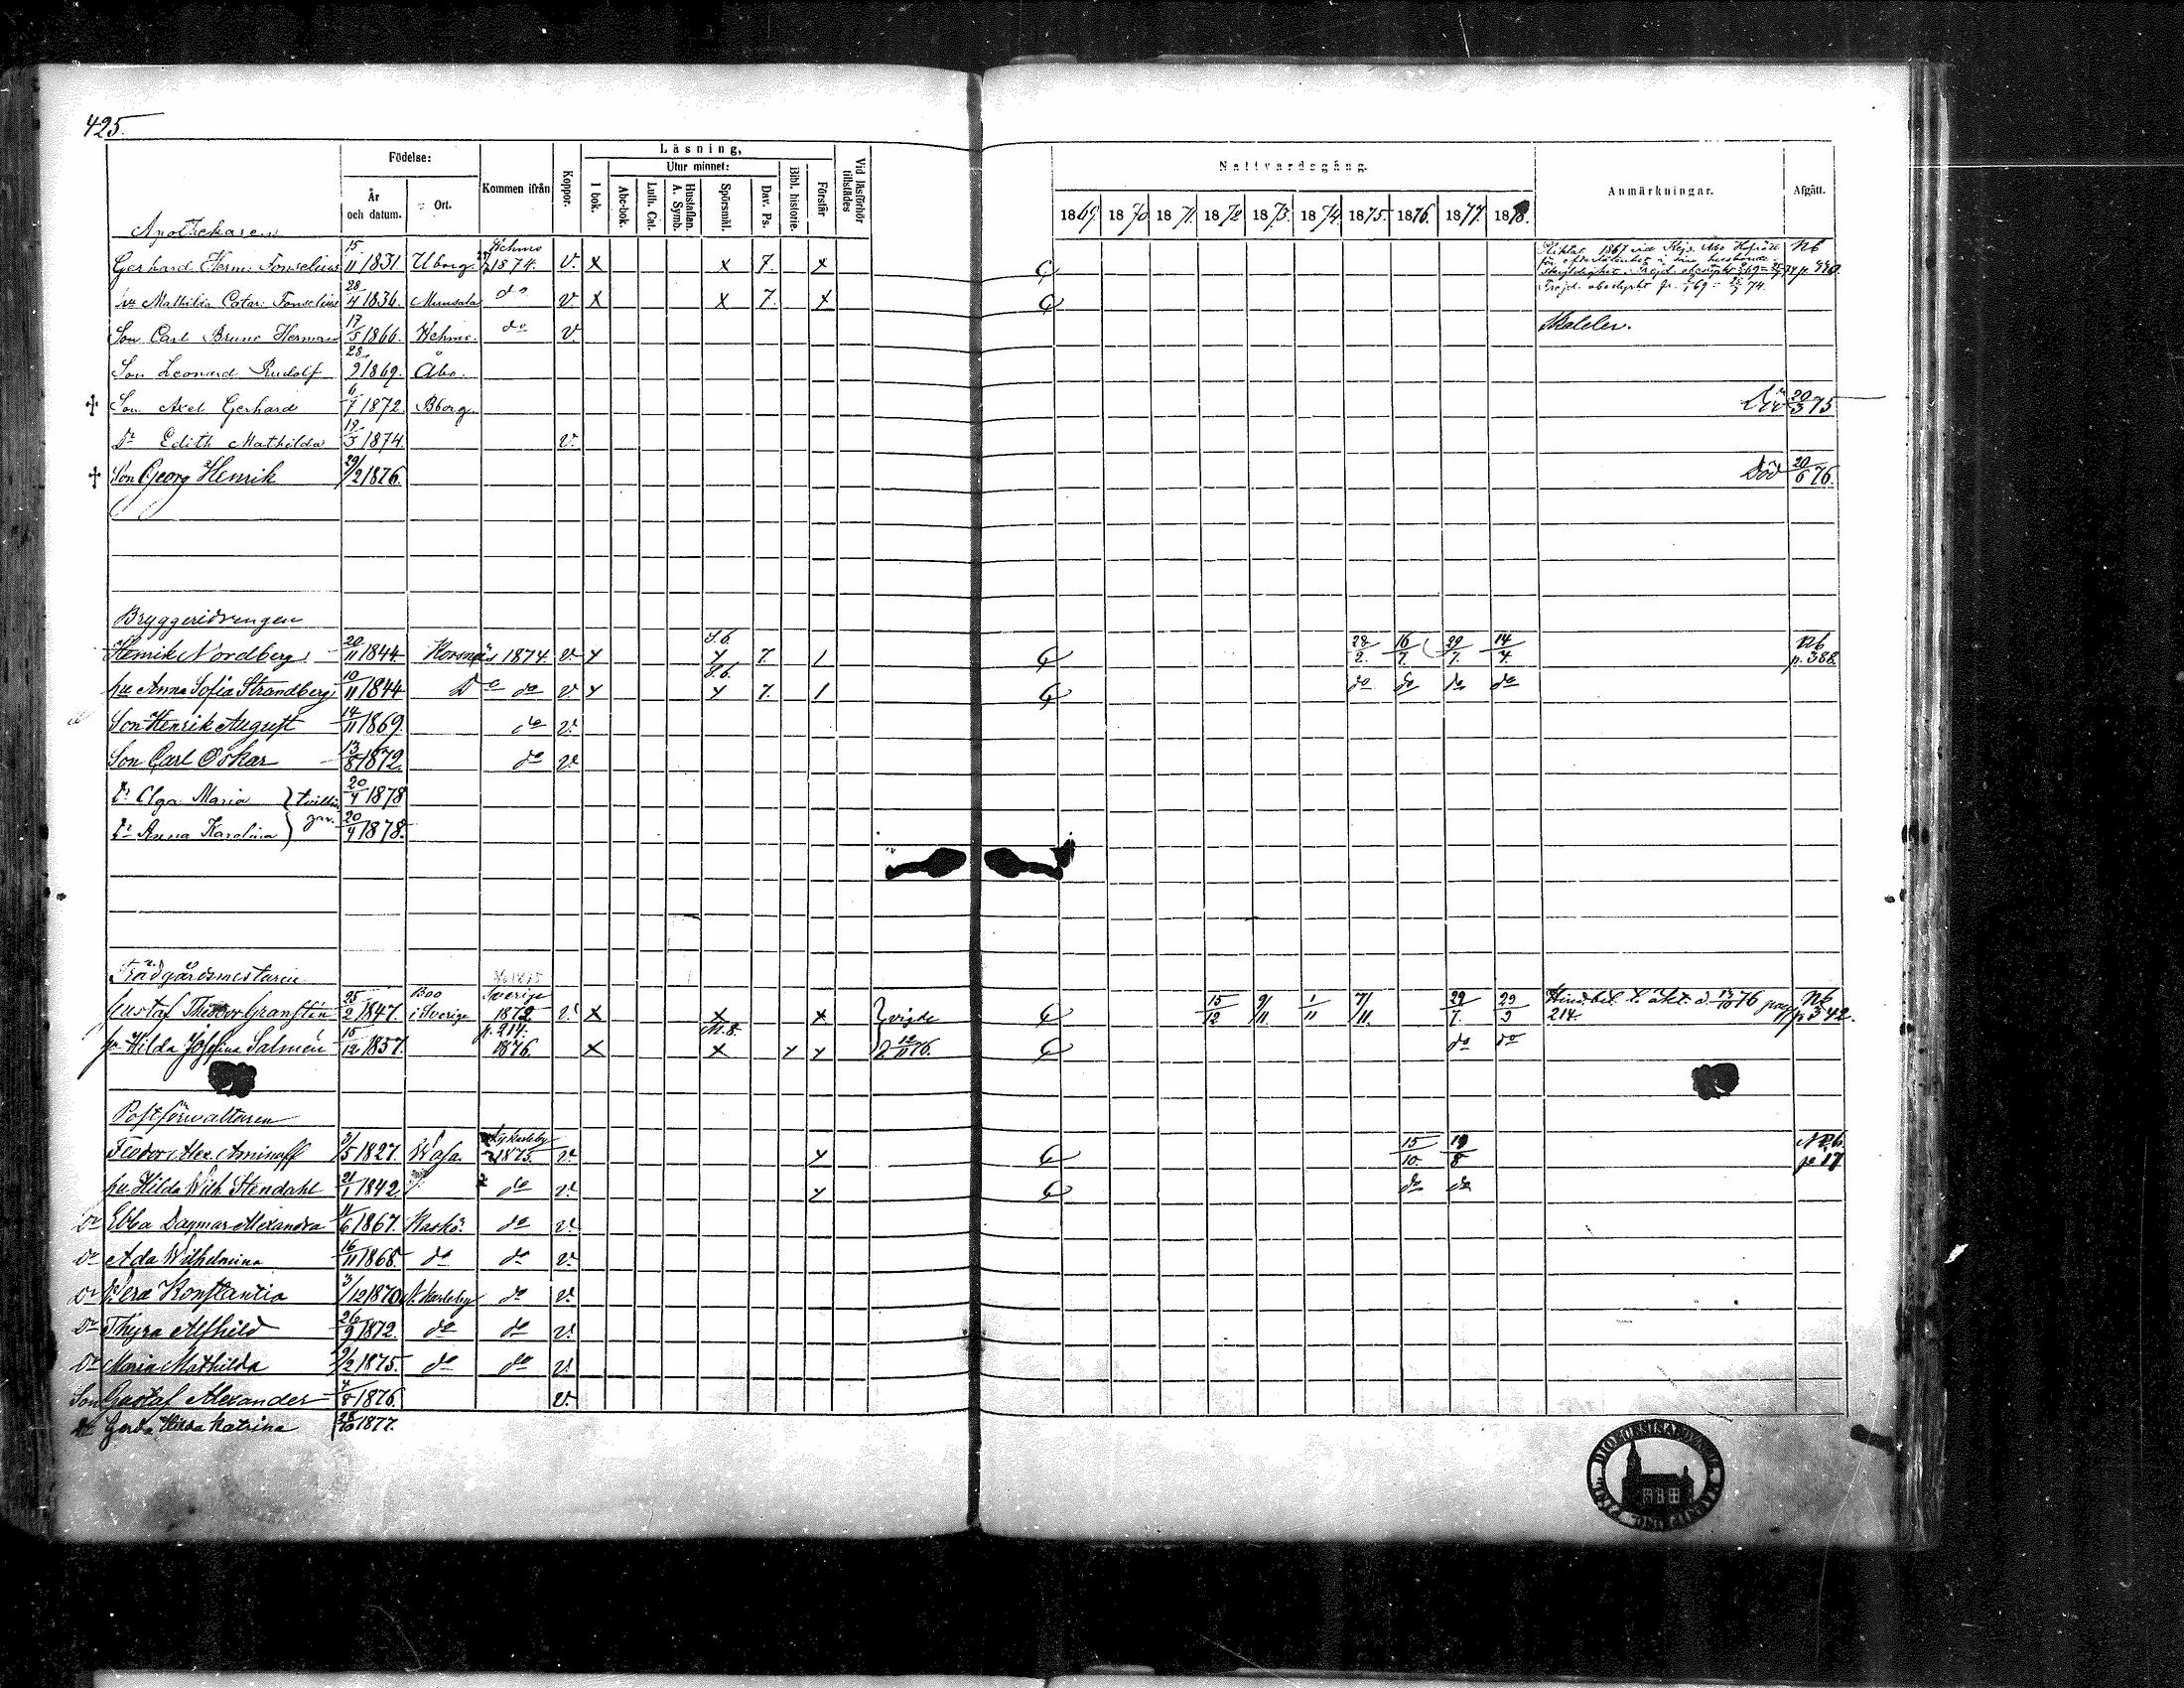 425.
Födelse: Kommen ifrån Koppor. Läsning, Vid läsförhör tillstädes Nattvardsgång. Anmärkningar. Afgått.
År och datum. Ort. I bok. Utur minnet: Bibl. historie. Förstår
Abc-bok. Luth. Cat. Hustaflan. A. Symb. Spörsmål. Dav. Ps.
1869. 1870 1871. 1872 1873. 1874. 1875 1876. 1877. 1878.
Apothekaren
Gerhard Herm: Fonselius 15/11 1831. Uborg. Wehmo 1874. v. x x 7. x Nb
hu Mathilda Catar: Fonselius 28/4 1836. Munsala do v. x x 7. x
Son Carl Bruno Herman 17/5 1866. Wehmo. do v.
Son Leonard Rudolf 28/9 1869. Åbo.
+ Son Axel Gerhard 6/7 1872. Bborg. 20/3 75
Dr Edith Mathilda 19/3 1874. v.
+ Son Georg Henrik 29/2 1876. Död 20/6 76.
Bryggeridrengen
Henrik Nordberg 20/11 1844. Korsnäs 1874. v. x S.b x 7. 1 28/2. 16/7. 29/7. 14/4. Nb p. 388.
hu Anna Sofia Strandberg 10/11 1844 Do do v. x S.b. x 7. 1 do do do do
Son Henrik August 14/11 1869. do v.
Son Carl Oskar 13/8 1872. do v.
Dr Olga Maria } tvillin 20/4 1878
Dr Anna Karolina } gar. 20/4 1878.
Trädgårdsmestaren
Gustaf Theodor Granstén 25/2 1847. Boo i Sverige Sverige 1872 v. x x x } vigde 15/12 9/11. 1/11 7/11. 29/7. 29/3 Hind.bet. t. äkt. d. 76 pag 214. Nb p. 342.
hu Hilda Josefina Salmén 15/12 1857. p. 214. 1876. x x x x 12/11 76. do do
Postförvaltaren
Feodor Alex. Aminoff 3/5 1827. Wasa. Nykarleby 1875. v. x 15/10. 19/8 p 17
hu Hilda Wilh. Stendahl 21/1 1842 do v. x do do
Dr Ebba Dagmar Alexandra 11/6 1867. Kaskö. do v.
Dr Ada Wilhelmina 16/11 1868. do do v.
Dr Vera Konstantia 3/12 1870 N. Karleby do v.
Dr Thyra Alfhild 26/9 1872. do do v.
Dr Maria Mathilda 9/2 1875. do do v.
Son Gustaf Alexander 4/8 1876. v.
Dr Gerda Hilda Katrina 1877.